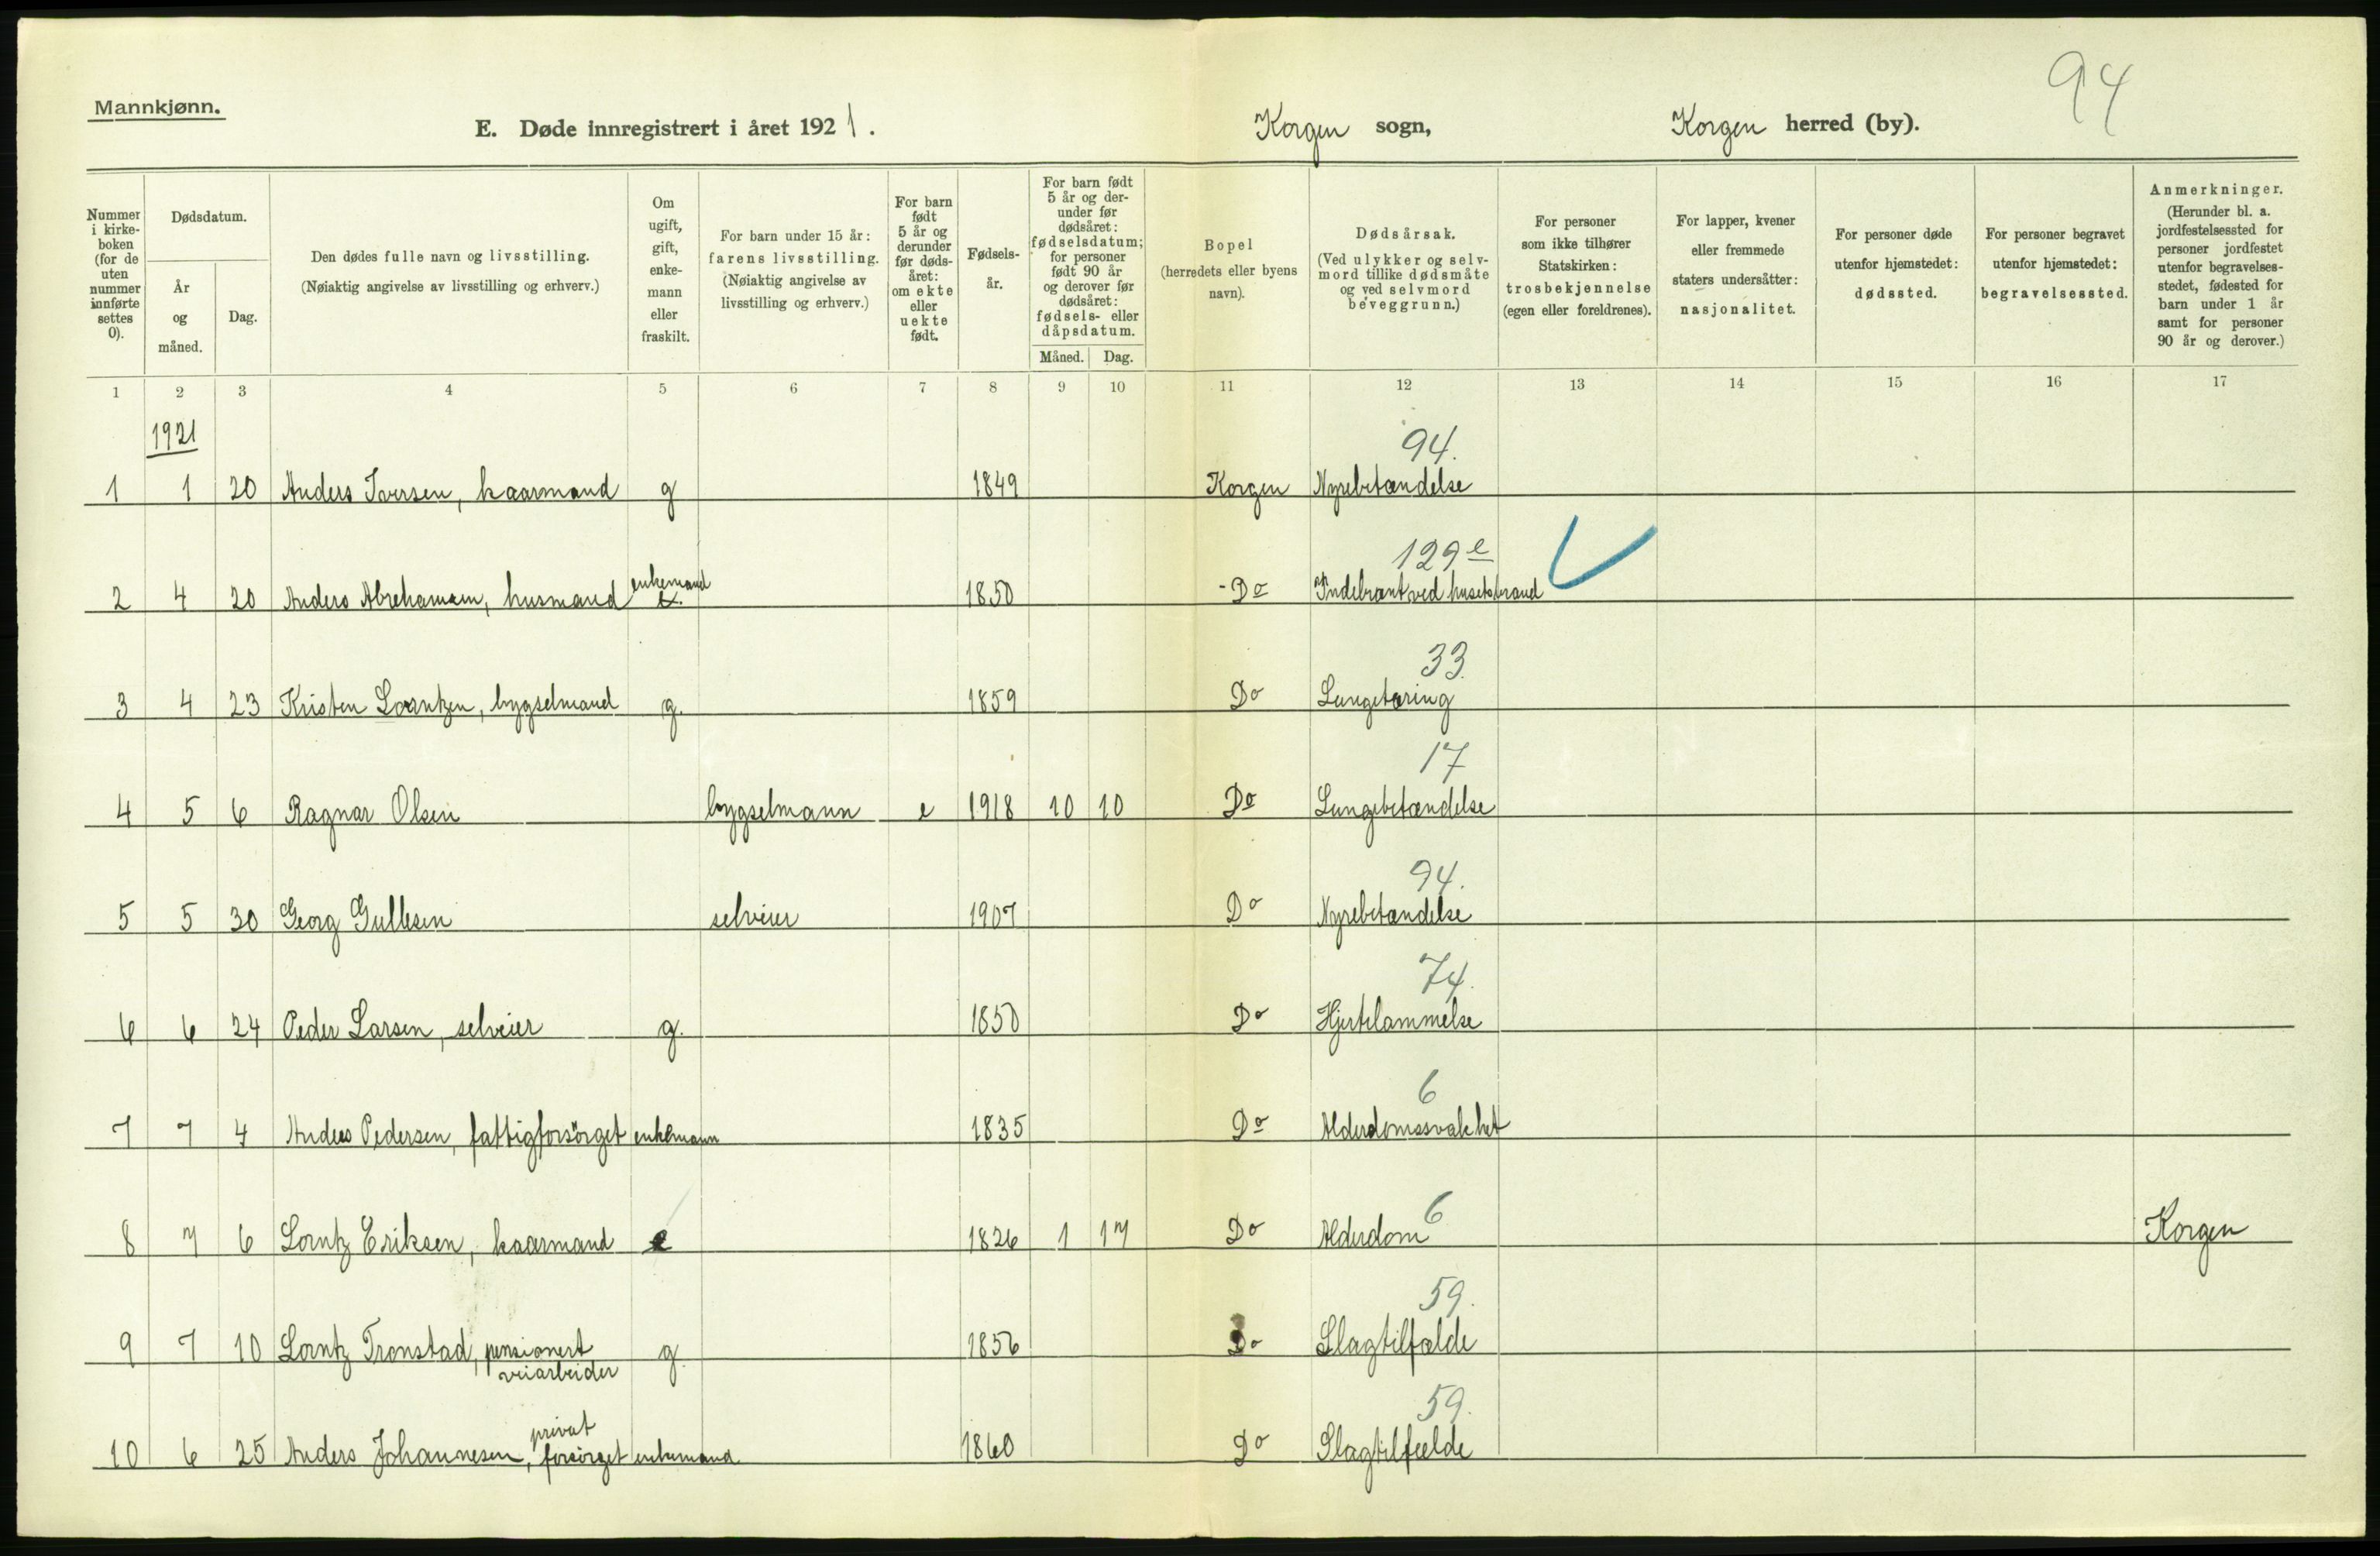 94
Mannkjønn.
E. Døde innregistrert i året 1921. Korgen sogn, Korgen herred (by).
Nummer i kirkeboken (for de uten nummer innførte settes 0).
Dødsdatum.
År og måned.
Dag.
Den dødes fulle navn og livsstilling.
(Nøiaktig angivelse av livsstilling og erhverv.)
Om ugift, gift, enkemann eller fraskilt.
For barn under 15 år: farens livsstilling.
(Nøiaktig angivelse av livsstilling og erhverv.)
For barn født 5 år og derunder før dødsåret: om ekte eller uekte født.
Fødselsår.
For barn født 5 år og derunder før dødsåret: fødselsdatum; for personer født 90 år og derover før dødsåret: fødsels- eller dåpsdatum.
Måned. Dag.
Bopel
(herredets eller byens navn).
Dødsårsak.
(Ved ulykker og selvmord tillike dødsmåte og ved selvmord beveggrunn.)
For personer som ikke tilhører Statskirken: trosbekjennelse (egen eller foreldrenes).
For lapper, kvener eller fremmede staters undersåtter: nasjonalitet.
For personer døde utenfor hjemstedet: dødssted.
For personer begravet utenfor hjemstedet: begravelsessted.
Anmerkninger.
(Herunder bl. a. jordfestelsessted for personer jordfestet utenfor begravelsesstedet, fødested for barn under 1 år samt for personer 90 år og derover.)
1 2 3 4 5 6 7 8 9 10 11 12 13 14 15 16 17
1921
94.
1 1 20 Anders Iversen, kaarmand g 1849 Korgen Nyrebetændelse
129e
2 4 20 Anders Abrahamsen, husmand enkemand e. 1850 Do Indebrænt ved husetsbrand
33.
3 4 23 Kristen Lorntzen, bygselmand g. 1859 Do Lungetæring
17
4 5 6 Ragnar Olsen bygselmann e 1918 10 10 Do Lungebetændelse
94.
5 5 30 Georg Gullesen selveier 1907 Do Nyrebetændelse
74.
6 6 24 Peder Larsen, selveier g. 1850 Do Hjertelammelse
6
7 7 4 Anders Pedersen, fattigforsørget enkemann 1835 Do Alderdomssvakhet
6
8 7 6 Lorntz Eriksen, kaarmand e 1826 1 17 Do Alderdom Korgen
59.
9 7 10 Lorntz Tronstad, pensionert veiarbeider g 1856 Do Slagtilfælde
59.
10 6 25 Anders Johannesen, privat forsørget enkemand 1860 Do Slagtilfælde